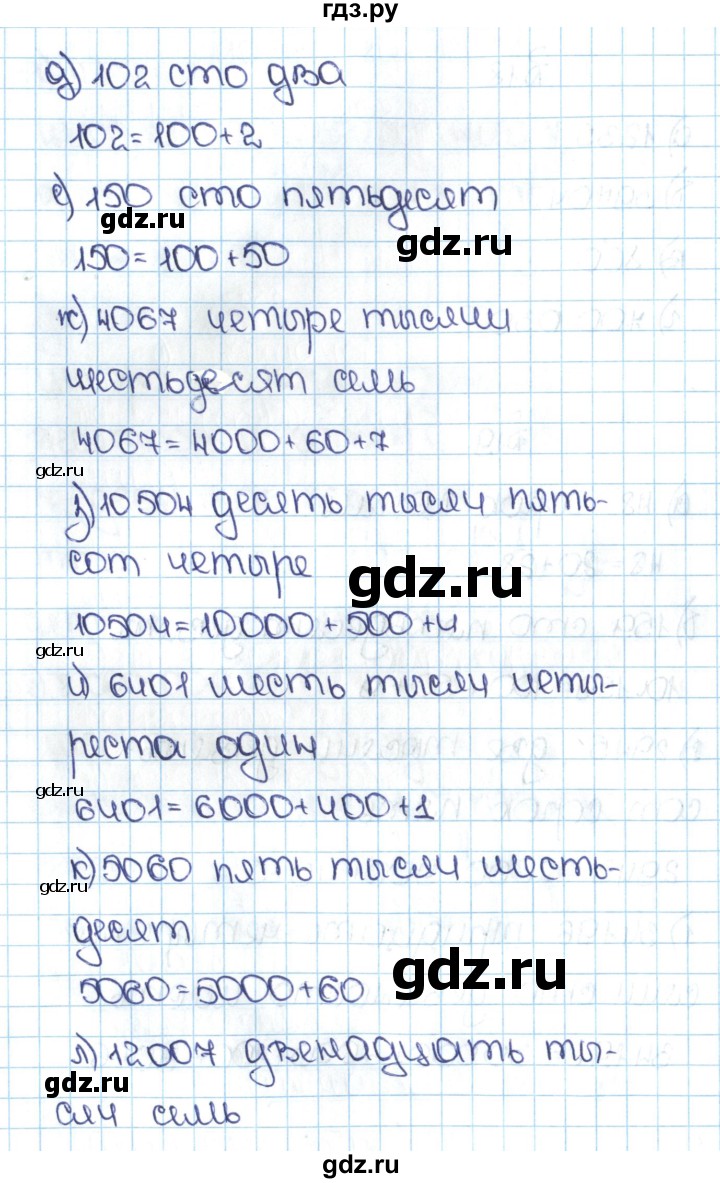 гдз.ру
д) 102 сто два
102=100+2
е) 150 сто пятьдесят
gdz.ru
gdz.ru
150=100+50
ж) 4067 четыре тысячи
шестьдесят семь
4067=4000+60+7
gdz.ru
з) 10504 десять тысяч пять-
сот четыре
gdz.ru
10504=10000+500+4
gdz.ru
и) 6401 шесть тысяч четы-
реста один
gdz.ru
6401=6000+400+1
к) 5060 пять тысяч шесть-
gdz.ru
десят
gdz.ru
5060=5000+60
л) 12007 двенадцать ты-
gdz.ru
сяч семь
gdz.ru